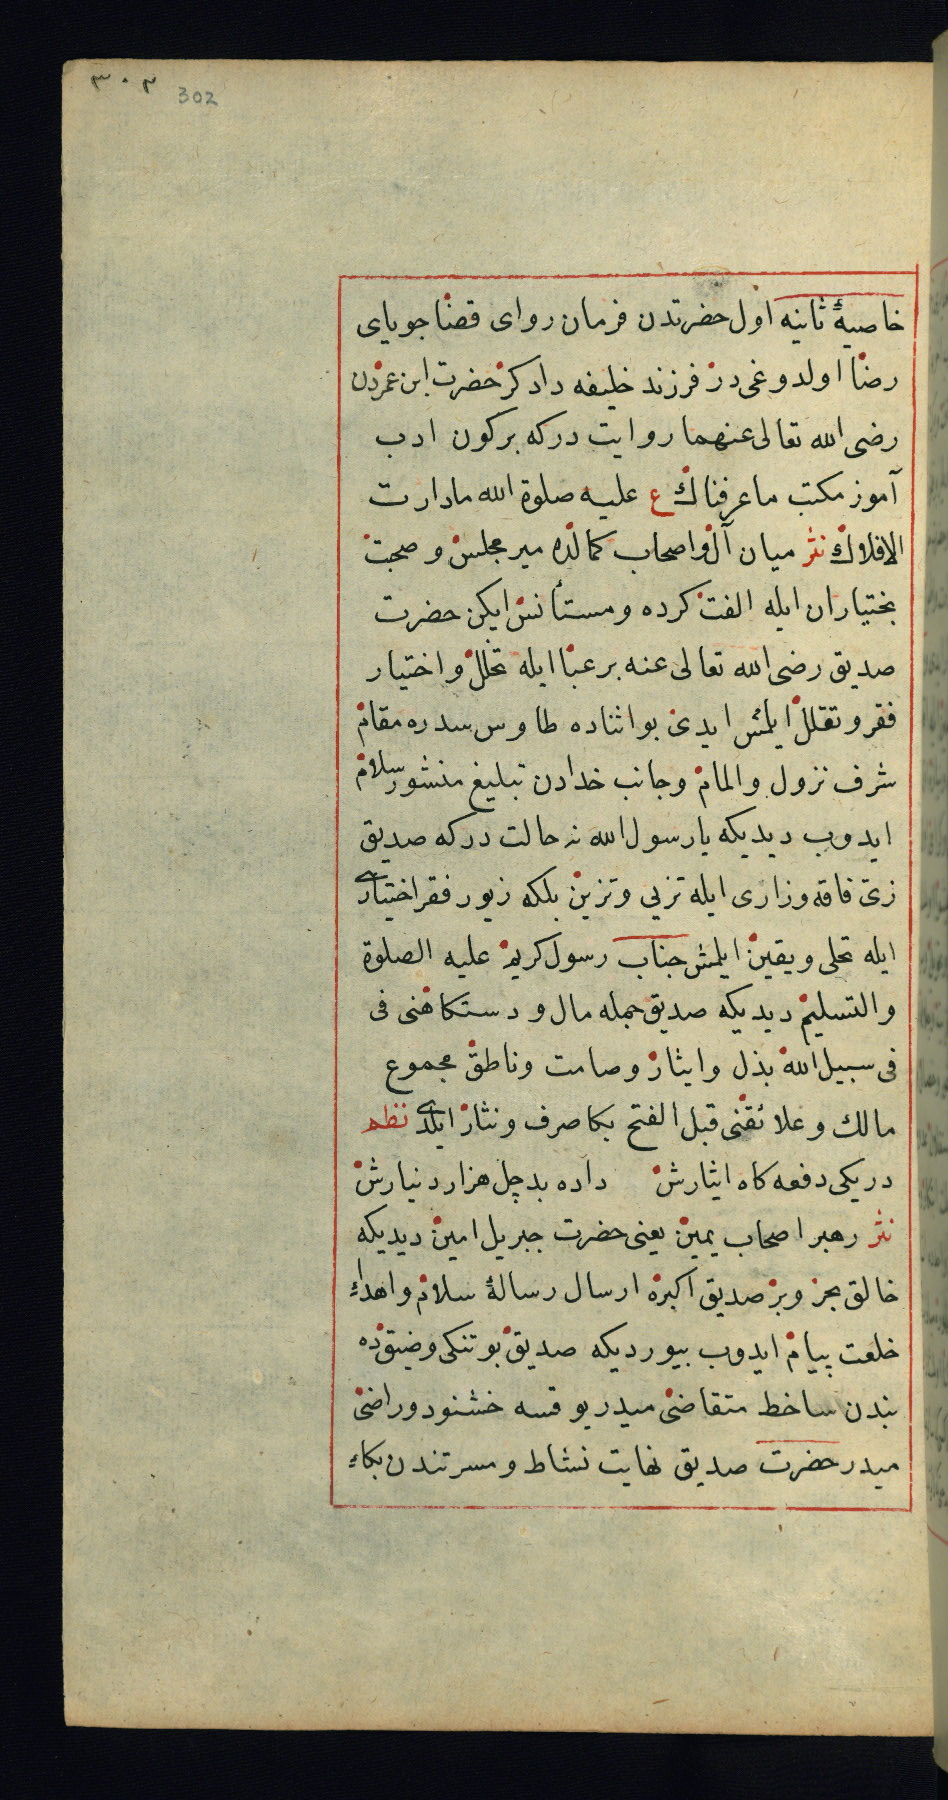 ٣٠٢ 302
خاصیهٔ ثانیه اول حضرتدن فرمان روای قضا جویای
رضا اولدوغی در فرزند خلیفه دادکر حضرت ابن عمردن
رضی الله تعالی عنهما روایت درکه برکون ادب
آموز مکتب ما عرفناك ع علیه صلوة الله مادارت
الافلاك نثر میان آل و اصحاب کمالده میر مجلس و صحبت
بختیاران ایله الفت کرده و مستأنس ایکن حضرت
صدیق رضی الله تعالی عنه بر عبا ایله تخلل و اختیار
فقر و تقلل ایلمش ایدی بو اثناده طاوس سدره مقام
شرف نزول و المام و جانب خدادن تبلیغ منشور سلام
ایدوب دیدیکه یا رسول الله نه حالت درکه صدیق
زی فاقه و زاری ایله تزیی و تزین بلکه زیور فقر اختیاری
ایله تحلی و یقین ایلمش جناب رسول کریم علیه الصلوة
والتسلیم دیدیکه صدیق جمله مال و دستکاهنی فی
فی سبیل الله بذل و ایثار و صامت و ناطق مجموع
مالك و علائقنی قبل الفتح بکا صرف و نثار ایلدی نظم
در یکی دفعه کاه ایثارش داده بد چل هزار دنیارش
نثر رهبر اصحاب یمین یعنی حضرت جبریل امین دیدیکه
خالق بحر و بر صدیق اکبره ارسال رسالهٔ سلام و اهداء
خلعت پیام ایدوب بیوردیکه صدیق بو تنکی و ضیقده
بندن ساخط متقاضی میدر یوقسه خشنود و راضی
میدر حضرت صدیق نهایت نشاط و مسرتندن بکاء